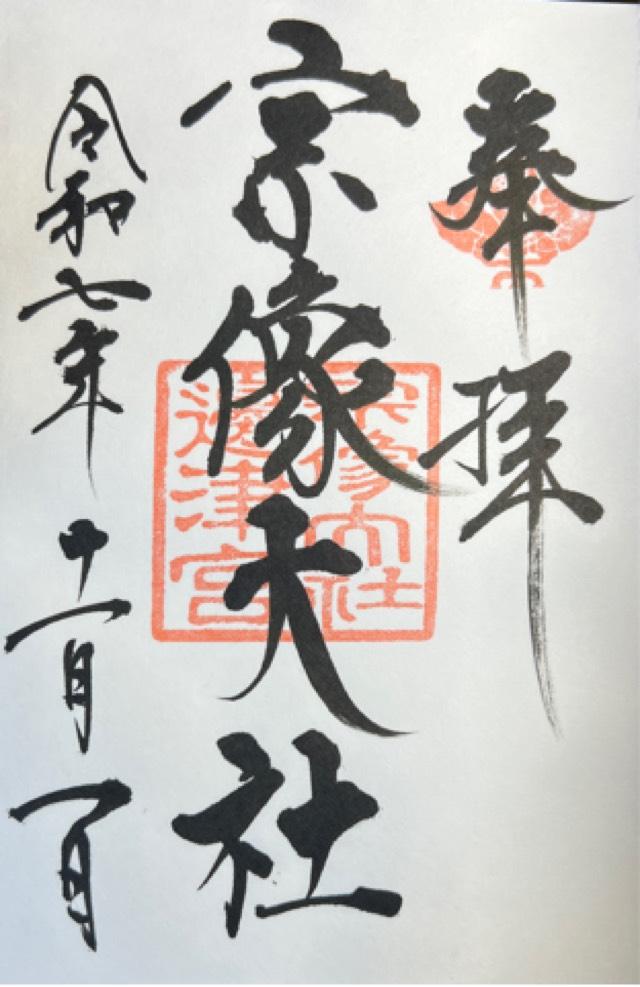 奉拝
宗像大社
宗像大社
邊津宮
令和七年十一月一日